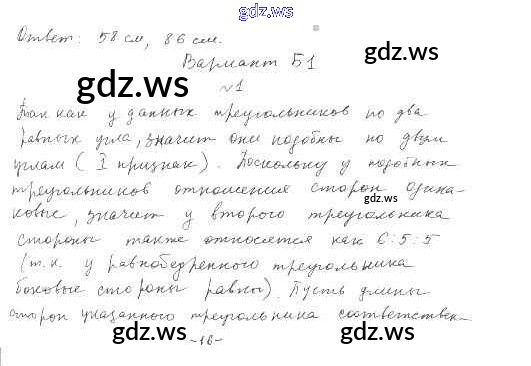 gdz.ws
Ответ: 58 см, 86 см.
gdz.ws
Вариант Б1
gdz.ws
№1
Так как у данных треугольников по два
равных угла, значит они подобны по двум
углам (I признак). Поскольку у подобных
gdz.ws
треугольников отношения сторон одина-
gdz.ws
ковые, значит у второго треугольника
стороны также относятся как 6:5:5
(т.к. у равнобедренного треугольника
боковые стороны равны). Пусть длины
сторон указанного треугольника соответствен-
gdz.ws
gdz.ws
-16-